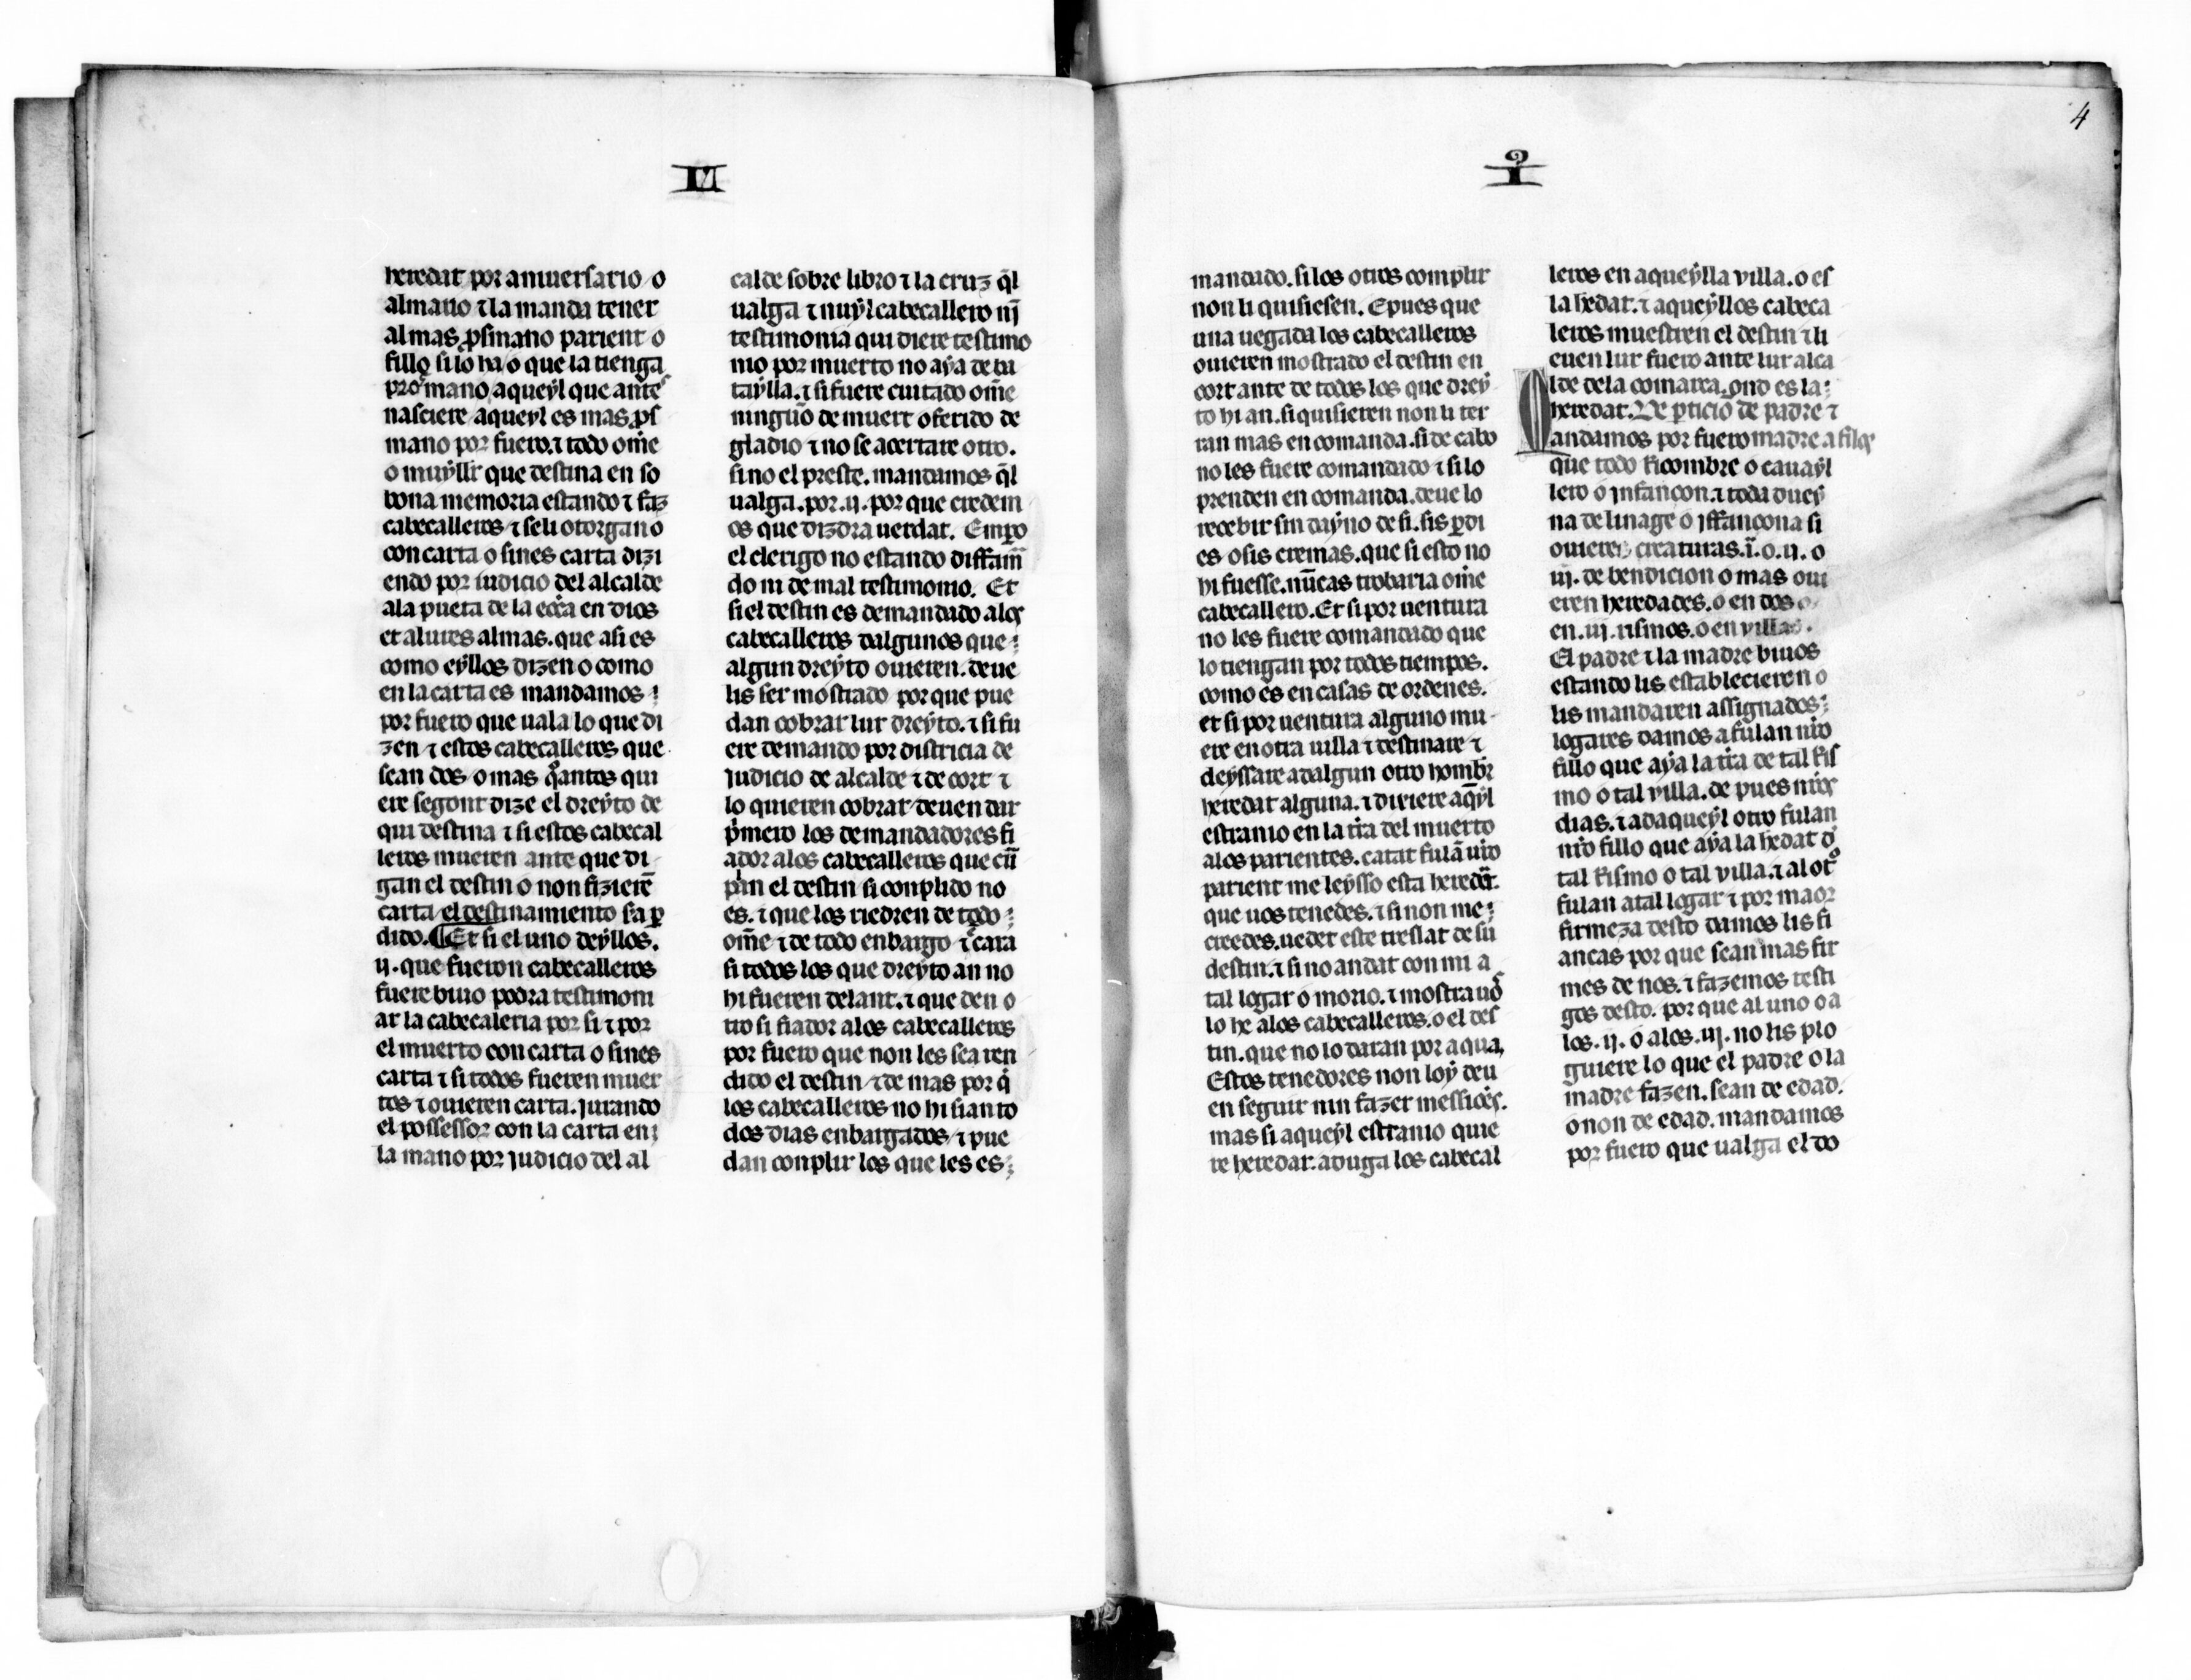 heredat por aniuersario o
almario ⁊ la manda tener
al mas p̱smano parient o
fillo si lo ha o que la tienga
pro mano aqueyl que ante
nasciere aqueyl es mas p̱s
mano por fuero. ⁊ todo om̄e
o muyller que destina en so
bona memoria estando ⁊ faz
cabecalleros ⁊ seli otorgan o
con carta o sines carta dizi
endo por iudicio del alcalde
ala puerta de la ecc̄a en dios
et a lures almas. que asi es
como eyllos dizen o como
en la carta es mandamos
por fuero que uala lo que di
zen ⁊ estos cabecalleros que
sean dos o mas q̊antos qui
ere segont dize el dreyto de
qui destina ⁊ si estos cabecal
leros mueren ante que di
gan el destin o non fizierē
carta el destinamiento sa ꝑ
dido. ¶ Et si el uno deyllos.
ij. que fueron cabecalleros
fuere biuo podra testimoni
ar la cabecaleria por si ⁊ por
el muerto con carta o sines
carta ⁊ si todos fueren muer
tos ⁊ ouieren carta. iurando
el possessor con la carta en
la mano por judicio del al
calde sobre libro ⁊ la cruz q̄l
ualga ⁊ nuyl cabecallero nj̄
testimonia qui diere testimo
nio por muerto no aya de ba
taylla. ⁊ si fuere cuitado om̄e
ningūo de muert o ferido de
gladio ⁊ no se acertare otro.
sino el preste. mandamos q̄l
ualga. por. ij. por que credem
os que dizdra uerdat. Empo
el clerigo no estando diffam̄
do ni de mal testimonio. Et
si el destin es demandado alos
cabecalleros dalgunos que
algun dreyto ouieren. deue
lis ser mostrado por que pue
dan cobrar lur dreyto. ⁊ si fu
ere demando por districia de
judicio de alcalde ⁊ de cort ⁊
lo quieren cobrar deuen dar
pͥmero los demandadores fi
ador alos cabecalleros que cū
plan el destin si conplido no
es. ⁊ que los riedren de todo
om̄e ⁊ de todo enbargo ⁊ cara
si todos los que dreyto an no
hi fueren delant. ⁊ que den o
tro si fiador alos cabecalleros
por fuero que non les sea ren
dido el destin ⁊ de mas por q̄
los cabecalleros no hi sian to
dos dias enbargados ⁊ pue
dan conplir los que les es
IIJ
mandado. si los otros complir
non li quisiesen. E pues que
una uegada los cabecalleros
ouieren mostrado el destin en
cort ante de todos los que drey
to hi an. si quisieren non li ter
ran mas en comanda. si de cabo
no les fuere comandado ⁊ si lo
prenden en comanda. deue lo
recebir sin dayno de si. sis ꝑdi
es o sis cremas. que si esto no
hi fuesse. nūcas trobaria om̄e
cabecallero. Et si por uentura
no les fuere comandado que
lo tiengan por todos tiempos.
como es en casas de ordenes.
et si por uentura alguno mu
ere en otra uilla ⁊ destinare ⁊
deyssare adalgun otro hombr̄
heredat alguna. ⁊ diziere aq̄yl
estranio en la tr̄a del muerto
alos parientes. catat fulā uro
parient me leysso esta heredat.
que uos tenedes. ⁊ si non me
creedes. uedet este treslat de su
destin. ⁊ si no andat con mi a
tal logar o morio. ⁊ mostra uos
lo he alos cabecalleros. o el des
tin. que no lo daran por aqua,
Estos tenedores non loy deu
en seguir nin fazer messiōes.
mas si aqueyl estranio quie
re heredar. aduga los cabecal
leros en aqueylla villa. o es
la h̄edat. ⁊ aqueyllos cabeca
leros muestren el destin ⁊ li
euen lur fuero ante lur alca
lde dela comarca. ond es la
heredat. De ꝑticiō de padre ⁊
Mandamos por fuero madre a fillos
que todo Ricombre o cauayl
lero o jnfançon. ⁊ toda duey
na de linage o jffançona si
ouieren creaturas. i. o. ij. o
iij. de bendicion o mas oui
eren heredades. o en dos o
en. iij. rismos. o en villas.
El padre ⁊ la madre biuos
estando lis establecieren o
lis mandaren assignados
logares damos a fulan nro
fillo que aya la tr̄a de tal Ris
mo o tal villa. de pues nros
dias. ⁊ adaqueyl otro fulan
nro fillo que aya la h̄edat d̄
tal Rismo o tal villa. ⁊ al ot̊
fulan atal logar ⁊ por maor
firmeza desto damos lis fi
ancas por que sean mas fir
mes de nos. ⁊ fazemos testi
gos desto. por que al uno o a
los. ij. o alos. iij. no lis plo
guiere lo que el padre o la
madre fazen. sean de edad.
o non de edad. mandamos
por fuero que ualga el do
4